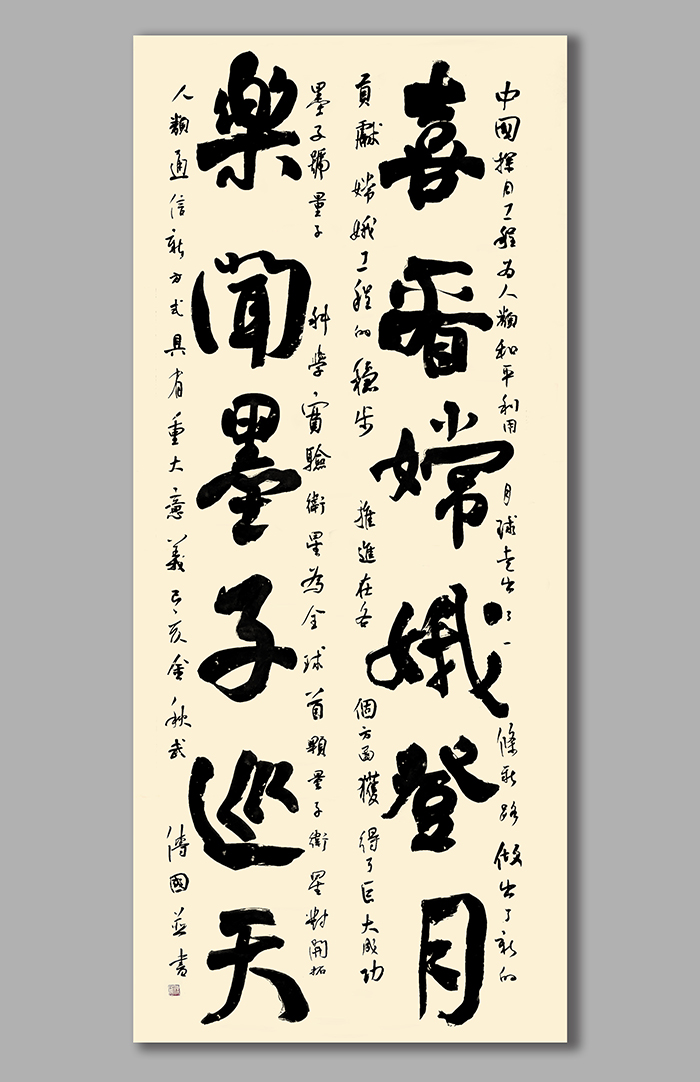 中國探月工程为人類和平利用月球走出了一條新路做出了新的
喜看嫦娥登月
貢獻嫦娥工程的穩步推進在各個方面獲得了巨大成功
墨子號量子科學實驗衛星為全球首顆量子衛星對開拓
樂聞墨子巡天
人類通信新方式具有重大意義己亥金秋武
國並書